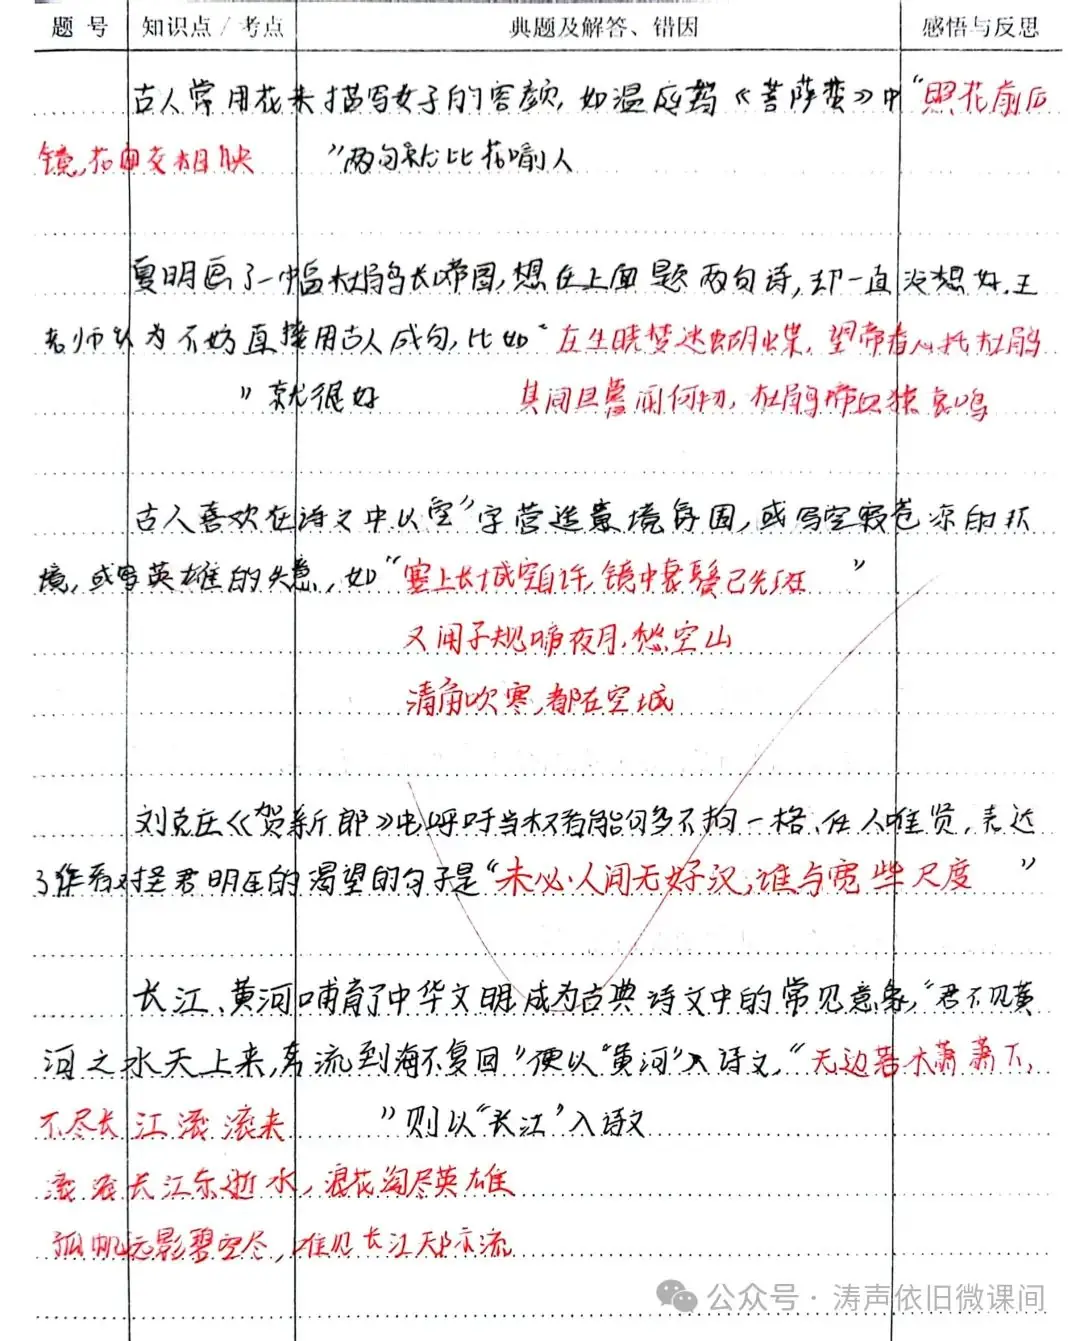 题 号 知识点 / 考点 典题及解答、错因 感悟与反思
古人常用花来描写女子的容颜,如温庭筠《菩萨蛮》中“照花前后
镜,花面交相映 ”两句就比花喻人
夏明画了一幅杜鹃鸟长啼图,想在上面题两句诗,却一直没想好.王
老师认为不妨直接用古人成句,比如“庄生晓梦迷蝴蝶,望帝春心托杜鹃
”就很好 其间旦暮闻何物,杜鹃啼血猿哀鸣
古人喜欢在诗文中以“空”字营造意境氛围,或写空寂苍凉的环
境,或写英雄的失意,如“塞上长城空自许,镜中衰鬓已先斑 ”
又闻子规啼夜月,愁空山
清角吹寒,都在空城
刘克庄《贺新郎》中呼吁当权者能够多不拘一格、任人唯贤,表达
了作者对圣君明臣的渴望的句子是“未必人间无好汉,谁与宽些尺度 ”
长江、黄河哺育了中华文明,成为古典诗文中的常见意象,“君不见黄
河之水天上来,奔流到海不复回”便以“黄河”入诗文,“无边落木萧萧下,
不尽长江滚滚来 ”则以“长江”入诗文
滚滚长江东逝水,浪花淘尽英雄
孤帆远影碧空尽,唯见长江天际流
公众号 · 涛声依旧微课间